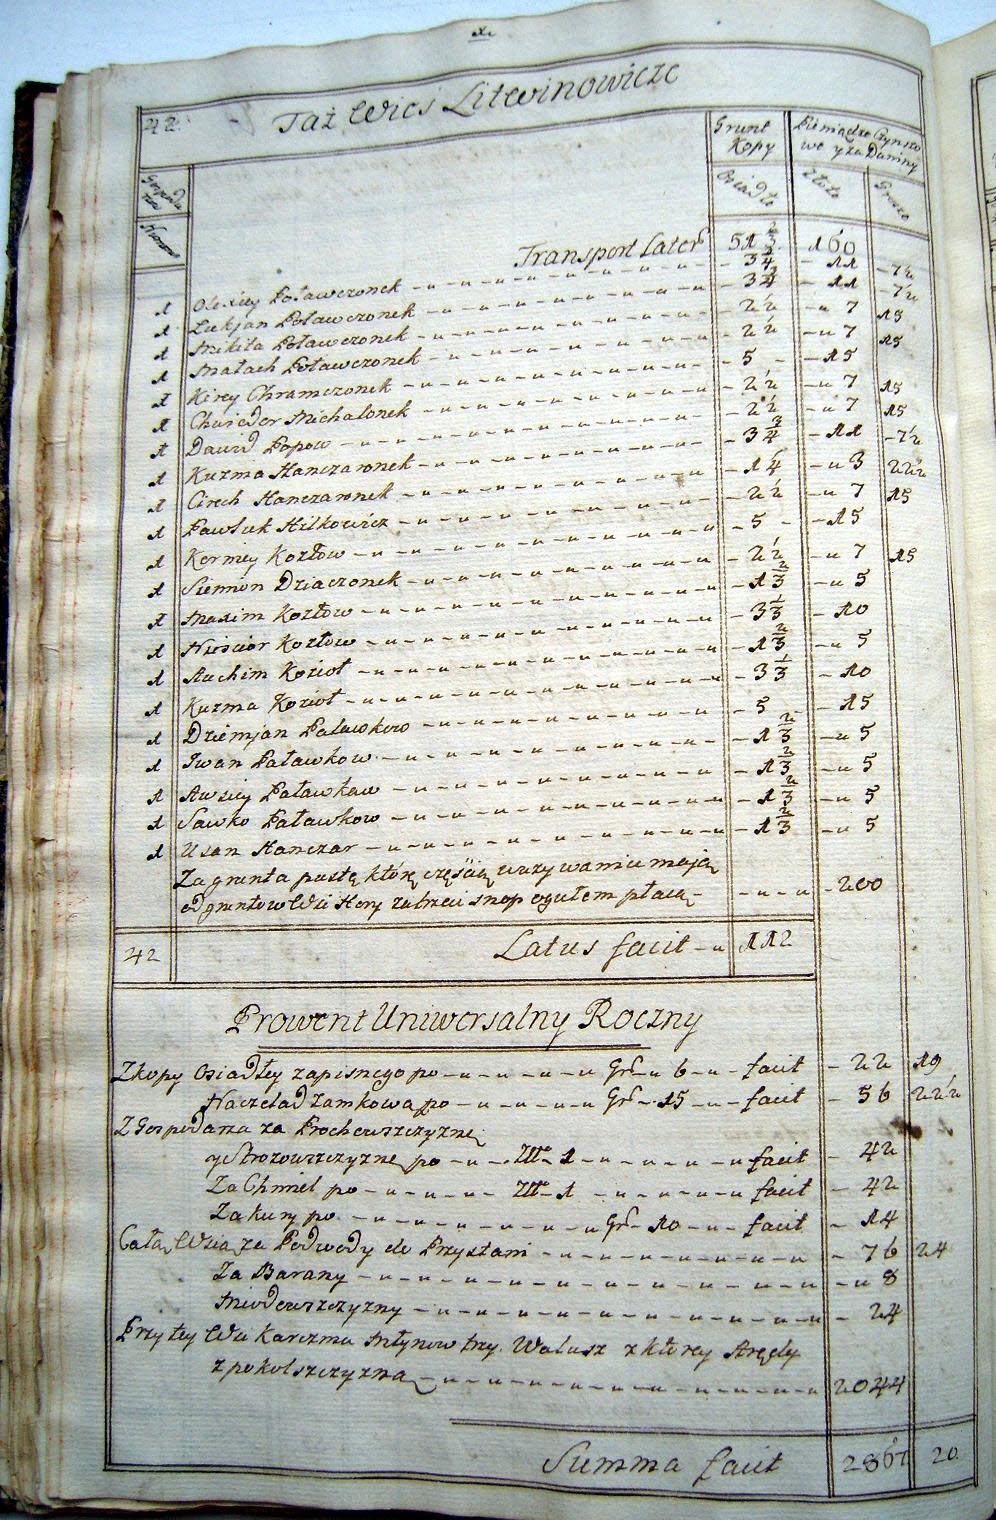 42.
Taż Wieś Litwinowicze
Grunt Kopy
Pieniądze Czynszowe y za Daniny
Osiadłe
Złote
Grosze
Transport Lateris 51 2/3 160
1 Olexiey Poławczonek 3 3/4 11 7 1/2
1 Łukjan Poławczonek 3 3/4 11 7 1/2
1 Mikita Poławczonek 2 1/2 7 15
1 Małach Poławczonek 2 1/2 7 15
1 Kirey Chramczonek 5 15
1 Chwiedor Michalonek 2 1/2 7 15
1 Dawid Popow 2 1/2 7 15
1 Kuzma Hanczaronek 3 3/4 11 7 1/2
1 Cirech Hanczaronek 1 1/4 3 22 1/2
1 Pawluk Hilkowicz 2 1/2 7 15
1 Kormey Kozłow 5 15
1 Siemion Dziaczonek 2 1/2 7 15
1 Maxim Kozłow 1 2/3 5
1 Nieścior Kozłow 3 1/3 10
1 Auchim Kozioł 1 2/3 5
1 Kuzma Kozioł 3 1/3 10
1 Dziemjan Paławkow 5 15
1 Iwan Paławkow 1 2/3 5
1 Awsiey Paławkow 1 2/3 5
1 Sawko Paławkow 1 2/3 5
1 Usan Hanczar 1 2/3 5
Za grunta puste które częścią w używaniu mają
od gruntow Wsi Hory za trzeci snop ogułem płacą 200
42 Latus facit 112
Prowent Uniwersalny Roczny
Z kopy Osiadłey zapisnego po Gr 6 facit 22 19
Na czeladź zamkową po Gr 15 facit 56 22 1/2
Z Gospodarza za Prochowszczyznę
y Strożowszczyznę po Złł 1 facit 42
Za Chmiel po Złł 1 facit 42
Za kury po Gr 10 facit 14
Cała Wsia za Podwody do Przystani 76 24
Za Barany 8
Miodowszczyzny 24
Przy tey Wsi Karczma Młynow trzy. Walusz z ktorey Arędy
z pokolszczyzną 2044
Summa facit 2867 20